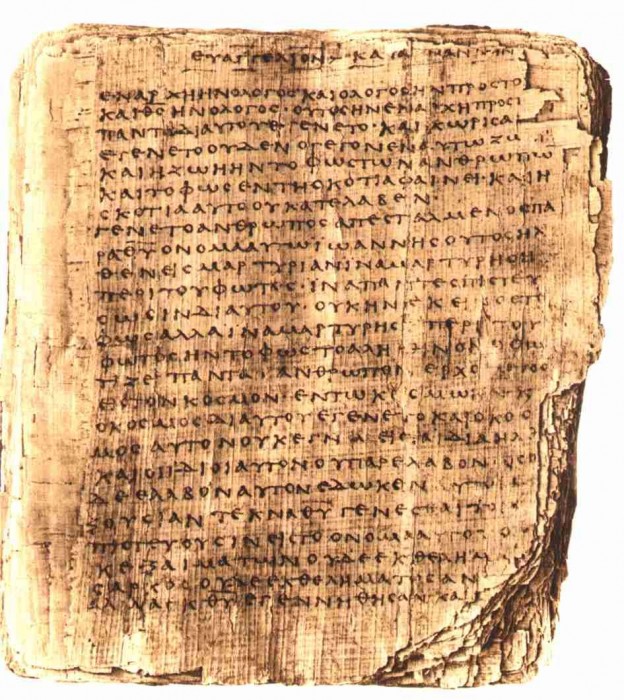 ΕΥΑΓΓΕΛΙΟΝ ΚΑΤΑ
ΕΝΑΡΧΗΗΝΟΛΟΓΟΣΚΑΙΟΛΟΓΟΣΗΝΠΡΟΣΤΟ
ΚΑΙΘΣΗΝΟΛΟΓΟΣ·ΟΥΤΟΣΗΝΕΝΑΡΧΗΠΡΟΣΤ
ΠΑΝΤΑΔΙΑΥΤΟΥΕΓΕΝΕΤΟ·ΚΑΙΧΩΡΙΣΑΥ
ΕΓΕΝΕΤΟΟΥΔΕΝΟΓΕΓΟΝΕΝΑΥΤΩΖΩ
ΚΑΙΗΖΩΗΗΝΤΟΦΩΣΤΩΝΑΝΘΡΩΠΩ
ΚΑΙΤΟΦΩΣΕΝΤΗΣΚΟΤΙΑΦΑΙΝΕΙ·ΚΑΙΗ
ΣΚΟΤΙΑΑΥΤΟΟΥΚΑΤΕΛΑΒΕΝ·
ΓΕΝΕΤΟΑΝΘΡΩΠΟΣΑΠΕΣΤΑΛΜΕΝΟΣΠΑ
ΡΑΘΥΟΝΟΜΑΑΥΤΩΙΩΑΝΝΗΣΟΥΤΟΣΗΛ
ΘΕΝΕΙΣΜΑΡΤΥΡΙΑΝΙΝΑΜΑΡΤΥΡΗΣΗ
ΠΕΡΙΤΟΥΦΩΤΟΣ·ΙΝΑΠΑΝΤΕΣΠΙΣΤΕΥ
ΣΩΣΙΝΔΙΑΥΤΟΥ·ΟΥΚΗΝΕΚΕΙΝΟΣΤΟ
ΦΩΣΑΛΛΑΙΝΑΜΑΡΤΥΡΗΣΗ ΠΕΡΙΤΟΥ
ΦΩΤΟΣΗΝΤΟΦΩΣΤΟΑΛΗ ΙΝΟΝ
ΤΙΖΕΙΠΑΝΤΑΑΝΘΡΩΠΟΝΕΡΧΟ
ΕΙΣΤΟΝΚΟΣΜΟΝ·ΕΝΤΩΚΟΣΜΩΗΝ
ΟΚΟΣΜΟΣΔΙΑΥΤΟΥΕΓΕΝΕΤΟΚΑΙΟΚΟΣ
ΜΟΣΑΥΤΟΝΟΥΚΕΓΝΩΕΙΣΤΑΙΔΙΑΗΛΘ
ΚΑΙΟΙΙΔΙΟΙΑΥΤΟΝΟΥΠΑΡΕΛΑΒΟΝ·ΟΣΟ
ΔΕΕΛΑΒΟΝΑΥΤΟΝΕΔΩΚΕΝ
ΞΟΥΣΙΑΝΤΕΚΝΑΘΥΓΕΝΕΣΘΑΙ
ΠΙΣΤΕΥΟΥΣΙΝΕΙΣΤΟΟΝΟΜΑΑΥΤΟΥ
ΚΕΞΑΙΜΑΤΩΝΟΥΔΕΕΚΘΕΛΗΜ
ΣΑΡΚΟΣΟΥΔΕΕΚΘΕΛΗΜΑΤΟΣΑΝ
ΑΛΛΑΕΚΘΥΕΓΕΝΝΗΘΗΣΑΝΚΑΙ